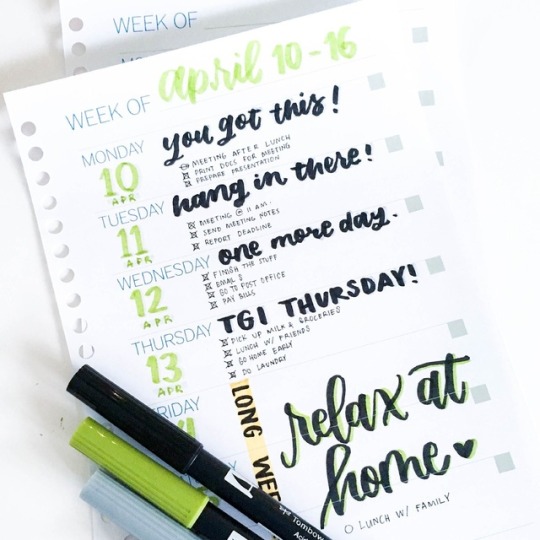 WEEK OF
WEEK OF april 10-16
MONDAY you got this!
10
APR
MEETING AFTER LUNCH
PRINT DOCS FOR MEETING
PREPARE PRESENTATION
TUESDAY hang in there!
11
APR
MEETING @ 11 AM.
SEND MEETING NOTES
REPORT DEADLINE
WEDNESDAY one more day.
12
APR
FINISH THE STUFF
EMAIL
GO TO POST OFFICE
PAY BILLS
THURSDAY TGI THURSDAY!
13
APR
PICK UP MILK & GROCERIES
LUNCH W/ FRIENDS
GO HOME EARLY
DO LAUNDRY
LONG
relax at
home
LUNCH W/ FAMILY
Tombow